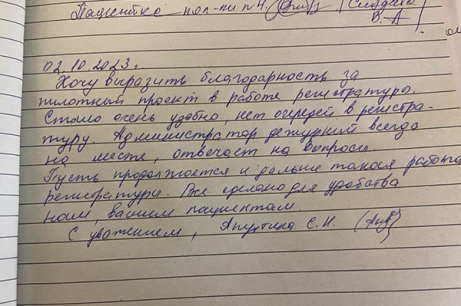 Пациентка пол-ки п 4
02.10.2023г.
Хочу выразить благодарность за
пилотный проект в работе регистратуры.
Стало очень удобно, нет очередей в регистра-
туру. Администратор дежурный всегда
на месте, отвечает на вопросы
Пусть продолжается и дальше такая работа
регистратуры. Все сделано для удобства
нам, вашим пациентам
С уважением, Апухтина С.Н.